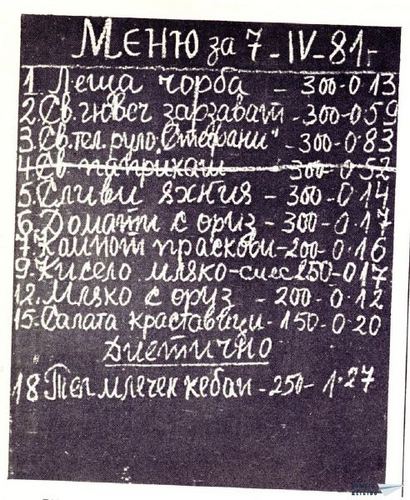 Меню за 7-IV-81г
1. Леща чорба - 300-0 13
2. Св. гювеч зарзават - 300-0 59
3. Св. тел. руло „Стефани“ - 300-0 83
4 Св паприкаш - 300-0 52
5. Сливи яхния - 300-0 14
6. Домати с ориз - 300-0.17
7. Компот праскови-200-0.16
9. Кисело мляко-смес 250-0 17
12. Мляко с ориз - 200-0 12
15. Салата краставици-150-0 20
Диетично
18 Тел млечен кебап-250-1.27